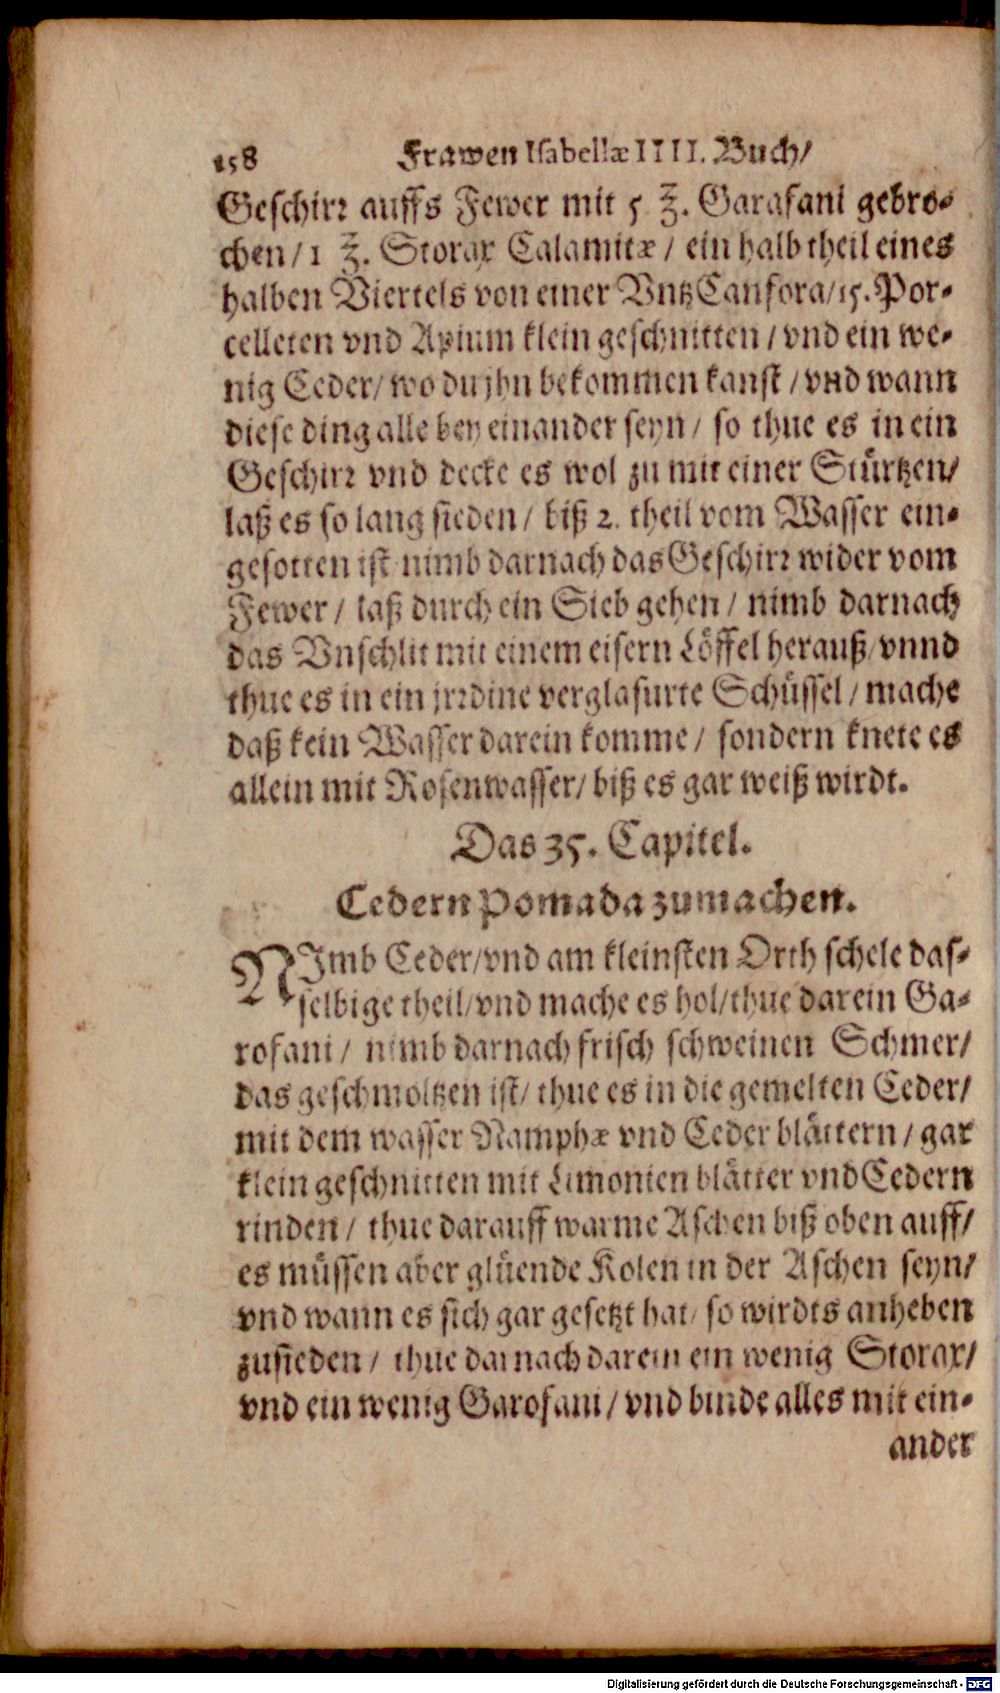 158 Frawen Isabellæ IIII. Buch/
Geschirꝛ auffs Fewer mit 5 ℥. Garafani gebro-
chen/ 1 ℥. Storax Calamitæ/ ein halb theil eines
halben Viertels von einer Vntz Canfora/ 15. Por-
celleten vnd Apium klein geschnitten/ vnd ein we-
nig Ceder/ wo du jhn bekommen kanst/ vnd wann
diese ding alle bey einander seyn/ so thue es in ein
Geschirꝛ vnd decke es wol zu mit einer Stürtzen/
laß es so lang sieden/ biß 2. theil vom Wasser ein-
gesotten ist nimb darnach das Geschirꝛ wider vom
Fewer/ laß durch ein Sieb gehen/ nimb darnach
das Vnschlit mit einem eisern Löffel herauß/ vnnd
thue es in ein jrꝛdine verglasurte Schüssel/ mache
daß kein Wasser darein komme/ sondern knete es
allein mit Rosenwasser/ biß es gar weiß wirdt.
Das 35. Capitel.
Cedern Pomada zumachen.
NImb Ceder/ vnd am kleinsten Orth schele das-
selbige theil/ vnd mache es hol/ thue darein Ga-
rofani/ nimb darnach frisch schweinen Schmer/
das geschmoltzen ist/ thue es in die gemelten Ceder/
mit dem wasser Namphæ vnd Ceder blättern/ gar
klein geschnitten mit Limonien blätter vnd Cedern
rinden/ thue darauff warme Aschen biß oben auff/
es müssen aber glüende Kolen in der Aschen seyn/
vnd wann es sich gar gesetzt hat/ so wirdts anheben
zusieden/ thue darnach darein ein wenig Storax/
vnd ein wenig Garofani/ vnd binde alles mit ein-
ander
Digitalisierung gefördert durch die Deutsche Forschungsgemeinschaft - DFG